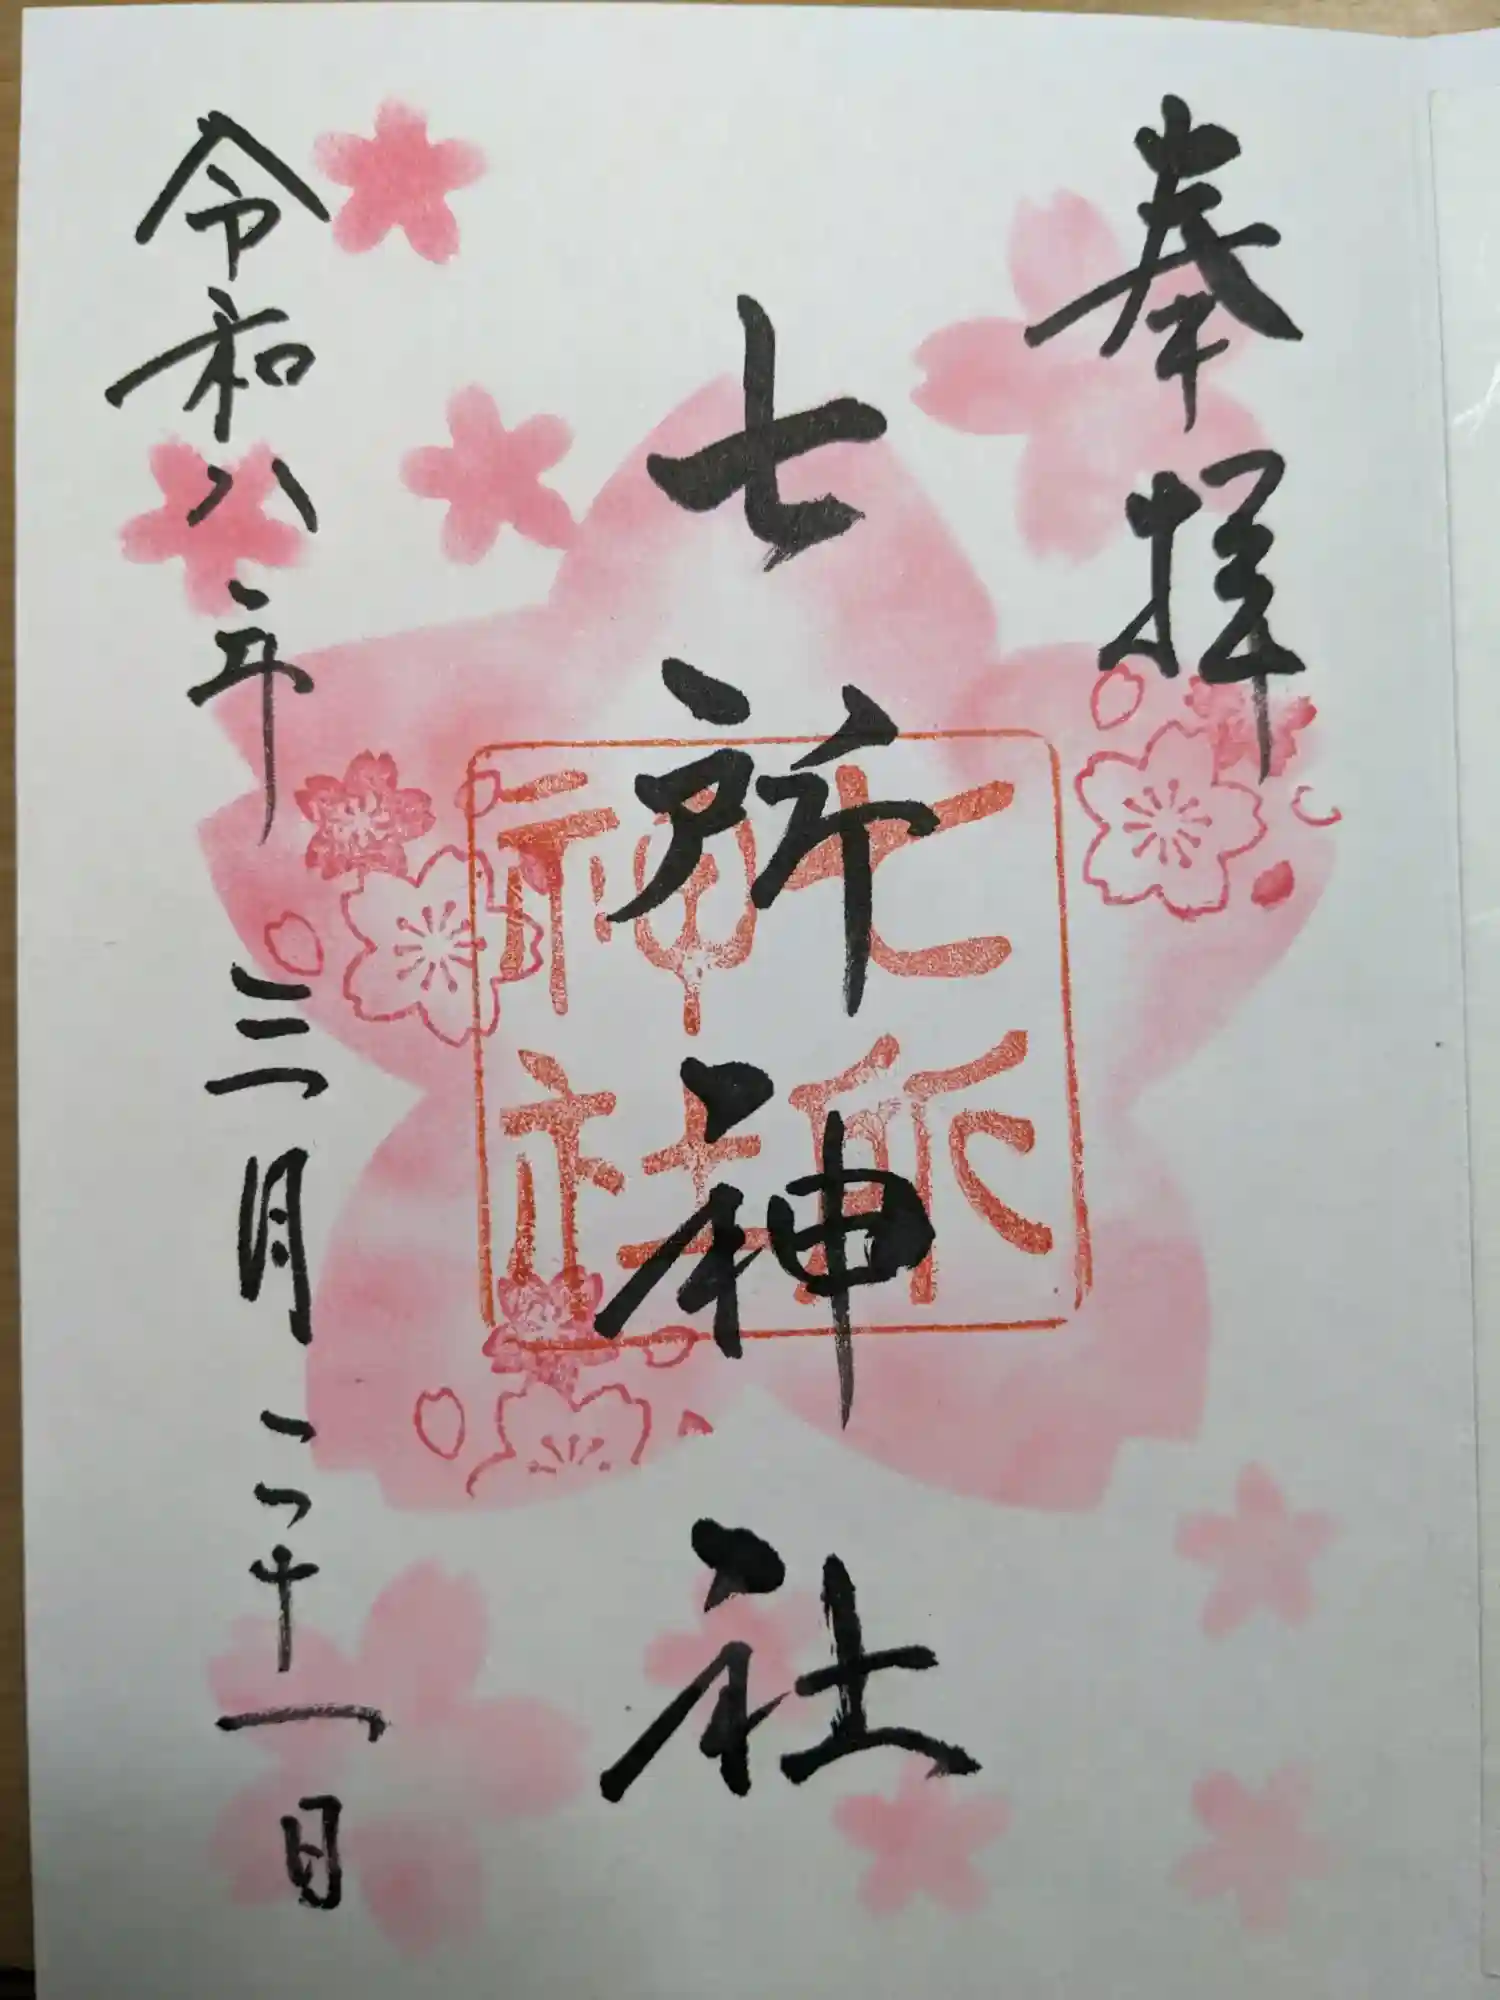 奉拝
七所神社
七所神社
令和八年三月二十一日